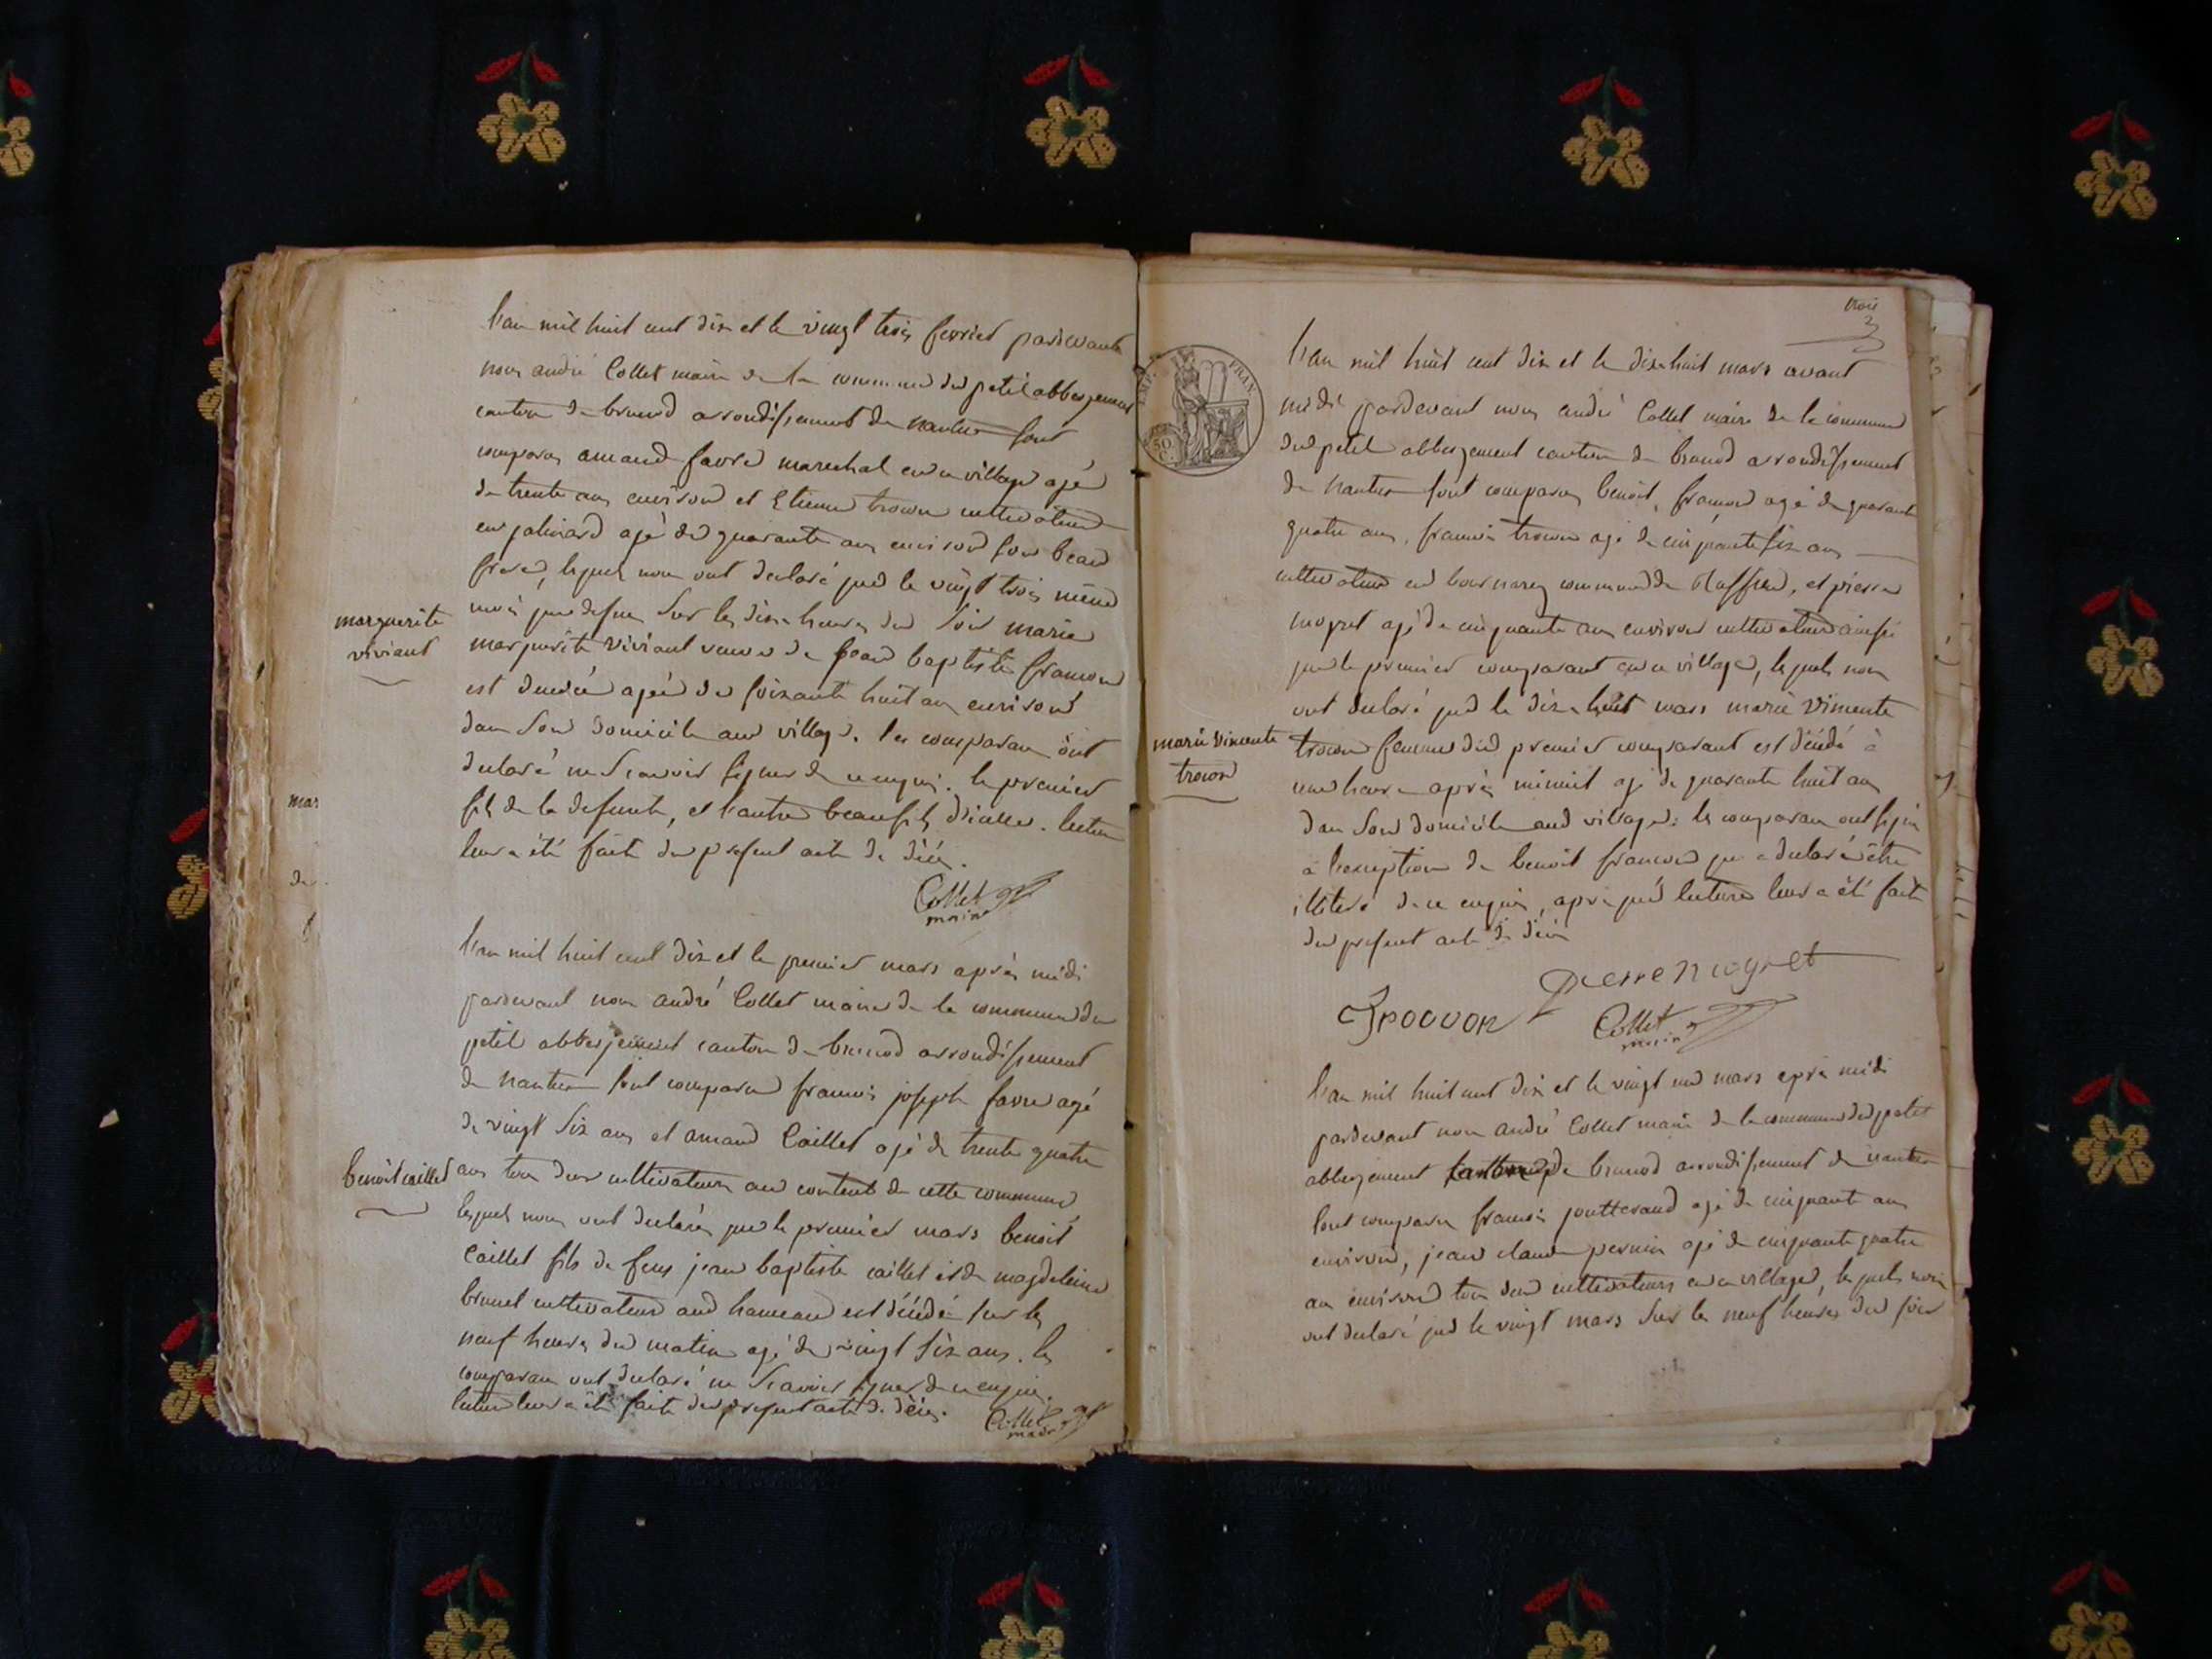 l'an mil huit cent dix et le vingt trois fevrier pardevant
nous andré Collet maire de la commune du petit abbergement
canton de brenod arrondissement de nantua sont
comparus amand favre marechal en ce village agé
de trente ans environ et Etienne trocon cultivateur
en jalinard agé de quarante ans environ son beau
frere, lesquels nous ont declaré que le vingt trois même
mois que dessus sur les dix heures du soir marie
marguerite viviant veuve de jean baptiste francon
est decedée agée de soixante huit ans environ
dans son domicile au village. les comparans ont
declaré ne scavoir signer de ce enquis. le premier
fils de la defunte, et l'autre beaufils d'icelle. lecture
leur a été faite du present acte de décés.
marguerite
viviant
Collet
maire
l'an mil huit cent dix et le premier mars après midi
pardevant nous andré Collet maire de la commune du
petit abbergement canton de brenod arrondissement
de nantua sont comparus francois joseph favre agé
de vingt six ans et amand Caillet agé de trente quatre
ans tous deux cultivateurs au content de cette commune
lesquels nous ont declarés que le premier mars benoit
Caillet fils de feus jean baptiste caillet et de magdeleine
brunet cultivateur aud hameau est décédé sur les
neuf heures du matin agé de vingt six ans. les
comparans ont declaré ne scavoir signer de ce enquis.
lecture leur a été faite du present acte de décés.
benoit caillet
Collet
maire
mar
de
trois
3
EMP. FRAN.
50
C.
l'an mil huit cent dix et le dix huit mars avant
midi pardevant nous andré Collet maire de la commune
du petit abbergement canton de brenod arrondissement
de nantua sont comparus benoit francon agé de quarante
quatre ans, francois trocon agé de cinquante six ans
cultivateur en commune de et pierre
agé de cinquante ans environ cultivateur ainsi
que le premier comparant en ce village, lesquels nous
ont declaré que le dix huit mars marie vincente
trocon femme du premier comparant est décédé à
une heure après minuit agé de quarante huit ans
dans son domicile aud village: les comparans ont signé
à l'exception de benoit francon qui a declaré être
illiteré de ce enquis, après que lecture leur a été faite
du present acte de décés
marie vincente
trocon
pierre
Collet
maire
l'an mil huit cent dix et le vingt un mars après midi
pardevant nous andré Collet maire de la commune du petit
abbergement canton de brenod arrondissement de nantua
sont comparus francois joutterand agé de cinquante ans
environ, jean claude pernin agé de cinquante quatre
ans environ tous deux cultivateurs en ce village, lesquels nous
ont declaré que le vingt mars sur les neuf heures du soir